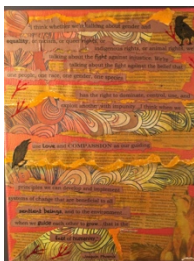 I think whether we're talking about gender
equality, or
indigenous rights, or animal rights, we're
talking about the fight against injustice. We're
talking about the fight against the belief that
one people, one race, one gender, one species
has the right to dominate, control, use, and
exploit another with impunity. I think when we
use love and COMPASSION as our guiding
principles we can develop and implement
systems of change that are beneficial to all
sentient beings, and to the environment
when we guide each other to good